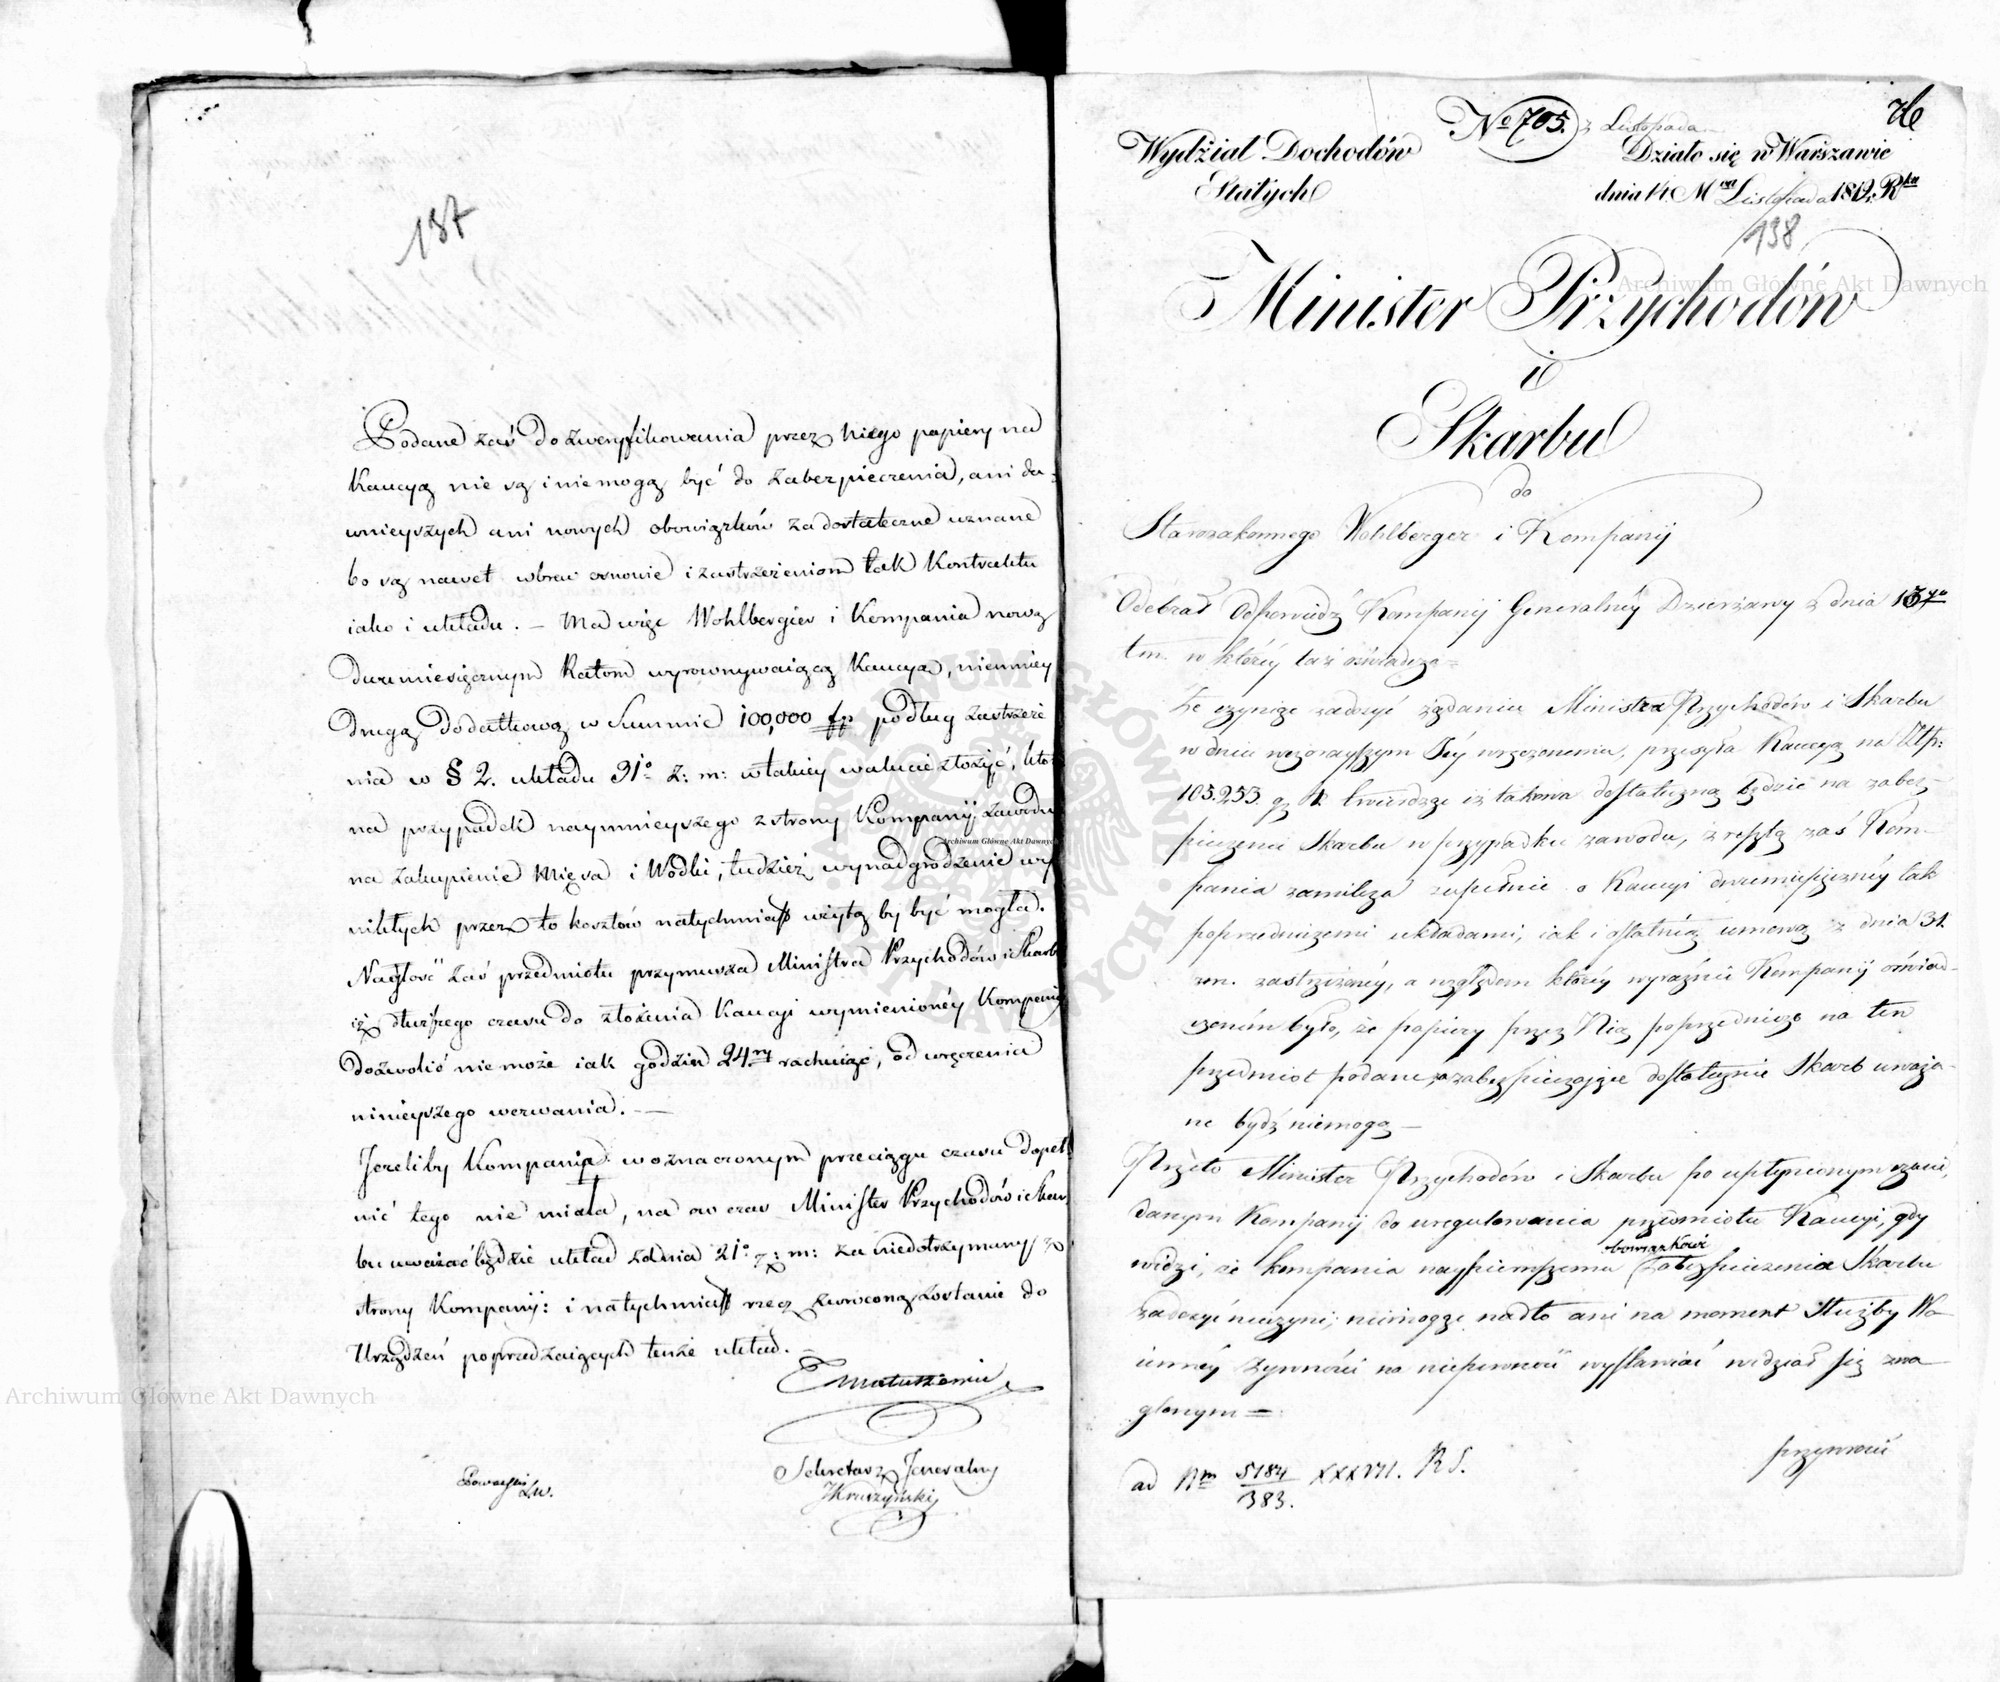 187
Podane zaś do zweryfikowania przez Niego papiery na
Kaucyą nie są i niemogą być do zabezpieczenia, ani da-
wnieyszych ani nowych obowiązków za dostateczne uznane
bo są nawet wbrew osnowie i zastrzeżeniom tak Kontraktu
iako i układu. — Ma więc Wohlbergier i Kompania nową
dwumiesięcznym Ratom wyrownywaiącą Kaucyą, niemniey
drugą dodatkową w Summie 100,000 fp podług zastrzeże
nia w § 2. układu 31° z: m: w takiey walucie złożyć, któ-
na przypadek naymnieyszego z strony Kompanij zawodu
na zakupienie Mięsa i Wódki, tudzież wynadgrodzenie wy
nikłych przez to kosztów natychmiast użytą by być mogła.
Nagłość zaś przedmiotu przymusza Ministra Przychodów i Skarb
iż dłuższego czasu do złożenia Kaucyi wymienionéy Kompanij
dozwolić nie może iak godzin 24.ry rachuiąc, od wręczenia
ninieyszego wezwania. —
Jeżeliby Kompania w oznaczonym przeciągu czasu dopeł
nić tego nie miała, na ow czas Minister Przychodów i Skar
bu uważać będzie układ z dnia 21° z: m: za niedotrzymany ze
strony Kompanij: i natychmiast rzecz zwrócona zostanie do
Urządzeń poprzedzaiących tenże układ. —
Matuszewic
Sekretarz Jeneralny
JKruszyński
No 705. z Listopada
Wydział Dochodów
Stałych
Działo się w Warszawie
dnia 14. Mca Listopada 1812. Rku
138
Minister Przychodów
i
Skarbu
do
Starozakonnego Wohlberger i Kompanij
Odebrał Odpowiedź Kompanij Generalnéy Dzierżawy z dnia 13go
t.m. w któréy taż oświadcza =
Że czyniąc zadosyć żądaniu Ministra Przychodów i Skarbu
w dniu wczorayszym Jéy wręczonemu, przesyła Kaucyą na Złp:
105.253. gr twierdząc iż takowa dostateczną będzie na zabez-
pieczenie Skarbu w przypadku zawodu, zresztą zaś Kom-
pania zamilcza zupełnie o Kaucyi dwumiesięcznéy tak
poprzedniczemi układami, iak i ostatnią umową z dnia 31.
z.m. zastrzeżonéy, a względem któréy wyraźnie Kompanij oświad-
czonem było, że papiery przez Nią poprzedniczo na ten
przedmiot podane, za zabezpieczaiące dostatecznie Skarb uważa-
ne bydź niemogą —
Przeto Minister Przychodów i Skarbu po upłynionym czasie,
danym Kompanij do uregulowania przedmiotu Kaucyi, gdy
widzi, że kompania naypierwszemu obowiązkowi zabezpieczenia Skarbu
zadosyć nieczyni; niemogąc nadto ani na moment Służby Wo-
iennéy Żywności na niepewność wystawiać widział się zna-
glonym =
przywrócić
ad Nm 5184/383. XXXVII. R S.